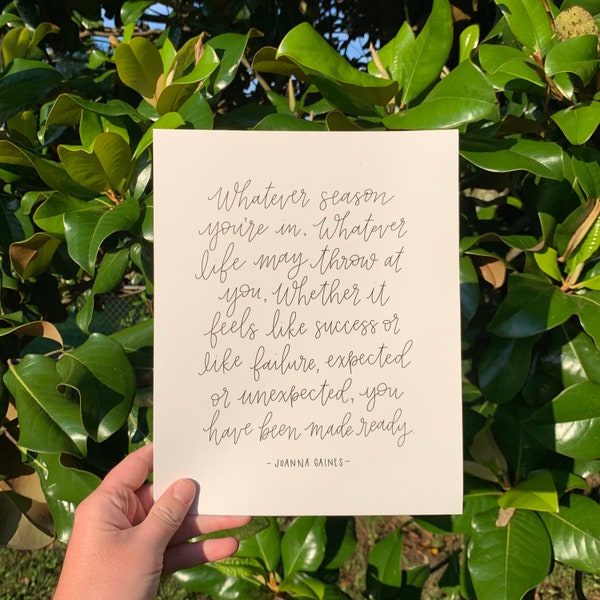 Whatever season
you're in, Whatever
life may throw at
you, Whether it
feels like success or
like failure, expected
or unexpected, you
have been made ready.
- JOANNA GAINES -